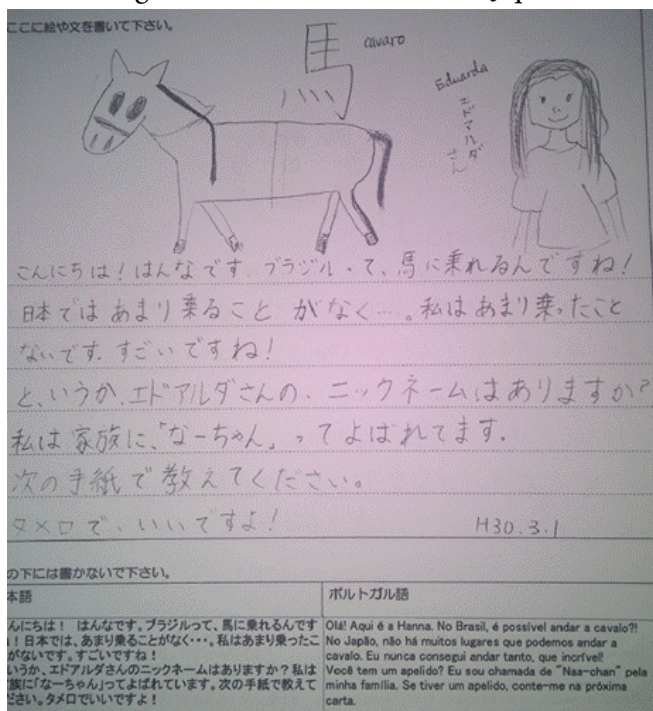 ここに絵や文を書いて下さい。
馬
cavaro
Eduarda
エドアルダ
さん
こんにちは!はんなです.ブラジルって、馬に乗れるんですね!
日本ではあまり乗ることがなく…。私はあまり乗ったこと
ないです.すごいですね!
と、いうか.エドアルダさんの.ニックネームはありますか?
私は家族に、「なーちゃん」ってよばれてます.
次の手紙で教えてください。
タメロで、いいですよ!
H30.3.1
の下には書かないで下さい。
本語
ポルトガル語
んにちは! はんなです。ブラジルって、馬に乗れるんです
!日本では、あまり乗ることがなく・・・。私はあまり乗ったこ
がないです。すごいですね!
いうか、エドアルダさんのニックネームはありますか?私は
族に「なーちゃん」ってよばれています。次の手紙で教えて
ださい。タメロでいいですよ!
Olá! Aqui é a Hanna. No Brasil, é possível andar a cavalo?!
No Japão, não há muitos lugares que podemos andar a
cavalo. Eu nunca consegui andar tanto, que incrível!
Você tem um apelido? Eu sou chamada de "Naa-chan" pela
minha família. Se tiver um apelido, conte-me na próxima
carta.